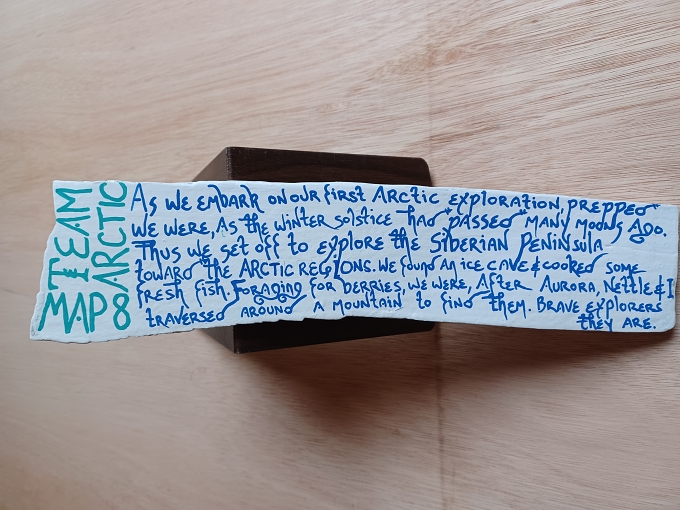 TEAM ARCTIC
MAP 8
As we embark on our first Arctic exploration, prepped
we were, As the winter solstice had passed many moons Ago.
Thus we set off to explore the Siberian Peninsula
toward the ARCTIC REGIONS. We found An ice cave & cooked some
fresh fish. Foraging for berries, we were, After Aurora, Nettle & I
traversed around a mountain to find them. Brave explorers
they are.